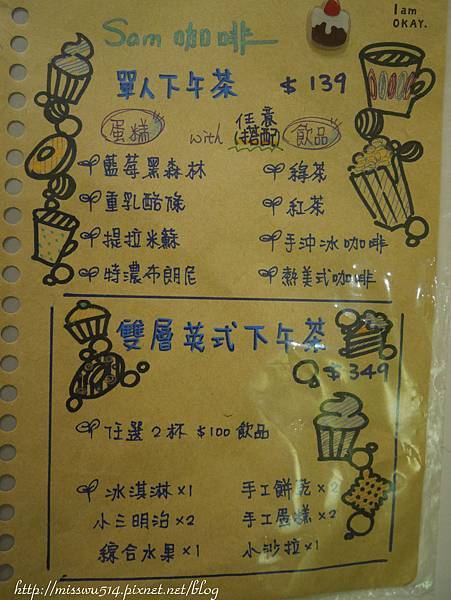 I am
OKAY.
Sam 咖啡
單人下午茶 $139
蛋糕 with 任意(搭配) 飲品
藍莓黑森林 綠茶
重乳酪條 紅茶
提拉米蘇 手沖冰咖啡
特濃布朗尼 熱美式咖啡
雙層英式下午茶
$349
任選2杯 $100飲品
冰淇淋×1 手工餅乾×2
小三明治×2 手工蛋糕×2
綜合水果×1 小沙拉×1
http://misswu514.pixnet.net/blog